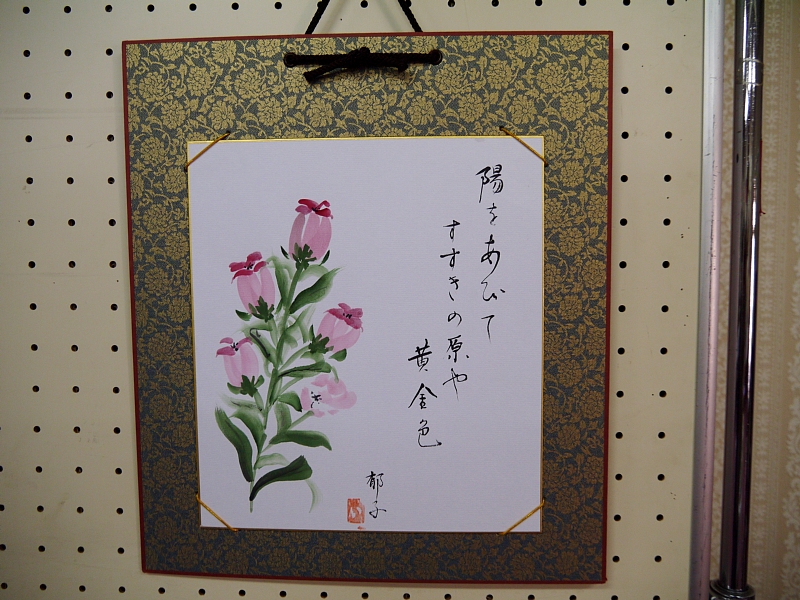 陽をあびて
すすきの原や
黄金色
郁子